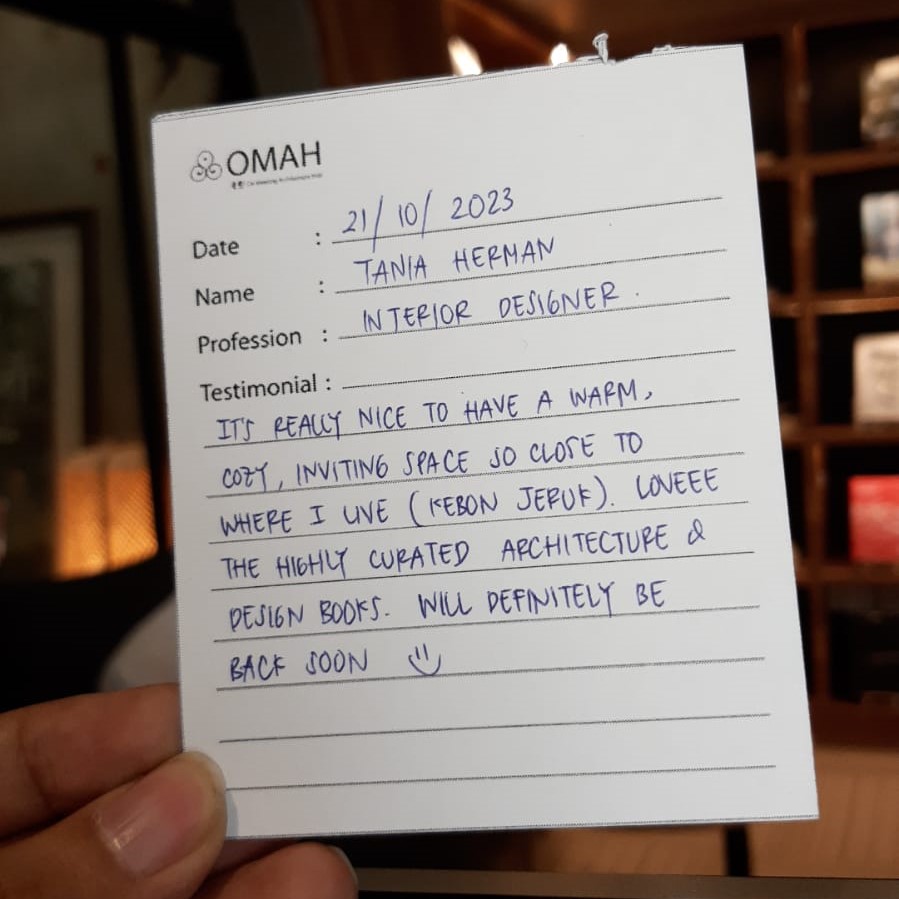 OMAH
Date : 21/10/2023
Name : TANIA HERMAN
Profession : INTERIOR DESIGNER.
Testimonial :
IT'S REALLY NICE TO HAVE A WARM,
COZY, INVITING SPACE SO CLOSE TO
WHERE I LIVE (KEBON JERUK). LOVEEE
THE HIGHLY CURATED ARCHITECTURE &
DESIGN BOOKS. WILL DEFINITELY BE
BACK SOON